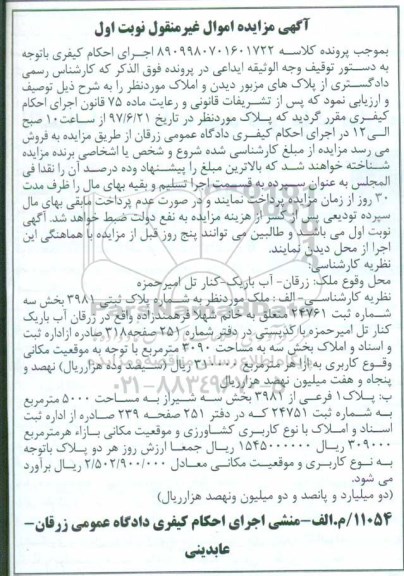 آگهی مزایده اموال غیرمنقول نوبت اول
بموجب پرونده کلاسه ۸۹۰۹۹۸۰۷۰۱۶۰۱۷۲۲ اجرای احکام کیفری باتوجه
به دستور توقیف وجه الوثیقه ابداعی در پرونده فوق الذکر که کارشناس رسمی
دادگستری از پلاک های مزبور دیدن و املاک موردنظر را به شرح ذیل توصیف
و ارزیابی نمود که پس از تشریفات قانونی و رعایت ماده ۷۵ قانون اجرای احکام
کیفری مقرر گردید که پلاک موردنظر در تاریخ ۹۷/۶/۲۱ از ساعت ۱۰ صبح
الی ۱۲ در اجرای احکام کیفری دادگاه عمومی زرقان از طریق مزایده به فروش
می رسد مزایده از مبلغ کارشناسی شده شروع و شخص یا اشخاصی برنده مزایده
شناخته خواهند شد که بالاترین مبلغ را پیشنهاد وده درصد آن را نقدا فی
المجلس به عنوان سپرده به قسمت اجرا تسلیم و بقیه بهای مال را ظرف مدت
۳۰ روز از زمان مزایده پرداخت نمایند و در صورت عدم پرداخت مابقی بهای مال
سپرده تودیعی پس از کسر از هزینه مزایده به نفع دولت ضبط خواهد شد. آگهی
نوبت اول می باشد و طالبین می توانند پنج روز قبل از مزایده با هماهنگی این
اجرا از محل دیدن نمایند.
نظریه کارشناسی:
محل وقوع ملک: زرقان- آب باریک-کنار تل امیرحمزه
نظریه کارشناسی-الف: ملک موردنظر به شماره پلاک ثبتی ۳۹۸۱ بخش سه
شماره ثبت ۲۴۷۶۱ متعلق به خانم شهلا فرهمندزاده واقع در زرقان آب باریک
کنار تل امیرحمزه با کدپستی در دفتر شماره ۲۵۱ صفحه ۳۱۸ صادره ازاداره ثبت
و اسناد و املاک بخش سه به مساحت ۳۰۹۰ مترمربع با توجه به موقعیت مکانی
وقوع کاربری به ازا هر مترمربع ۳۱۰۰۰۰ ریال (سیصد وده هزارریال) نهصد و
پنجاه و هفت میلیون نهصد هزارریال
ب: پلاک ۱ فرعی از ۳۹۸۲ بخش سه شیراز به مساحت ۵۰۰۰ مترمربع
به شماره ثبت ۲۴۷۵۱ که در دفتر ۲۵۱ صفحه ۲۳۹ صادره از اداره ثبت
اسناد و املاک با نوع کاربری کشاورزی و موقعیت مکانی بازاء هرمترمربع
۳۰۹۰۰۰ ریال ۱۵۴۵۰۰۰۰۰۰ ریال جمعا ارزش روز هر دو پلاک باتوجه
به نوع کاربری و موقعیت مکانی معادل ۲/۵۰۲/۹۰۰/۰۰۰ ریال برآورد
می شود.
(دو میلیارد و پانصد و دو میلیون ونهصد هزارریال)
۱۱۰۵۴/م.الف-منشی اجرای احکام کیفری دادگاه عمومی زرقان-
عابدینی